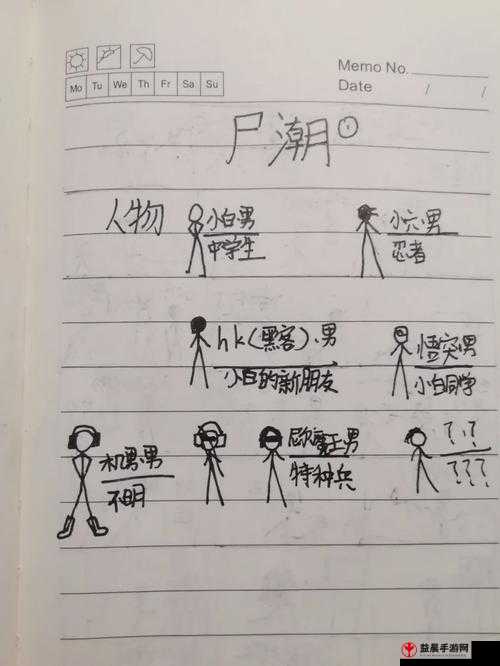 Memo No.
Mo Tu We Th Fr Sa Su
Date / /
尸潮①
人物
小白男
中学生
小六·男
忍者
hk(黑客)·男
小白的新朋友
悟空·男
小白同学
机男·男
不明
魔王·男
特种兵
?·?
???
益晨手游网